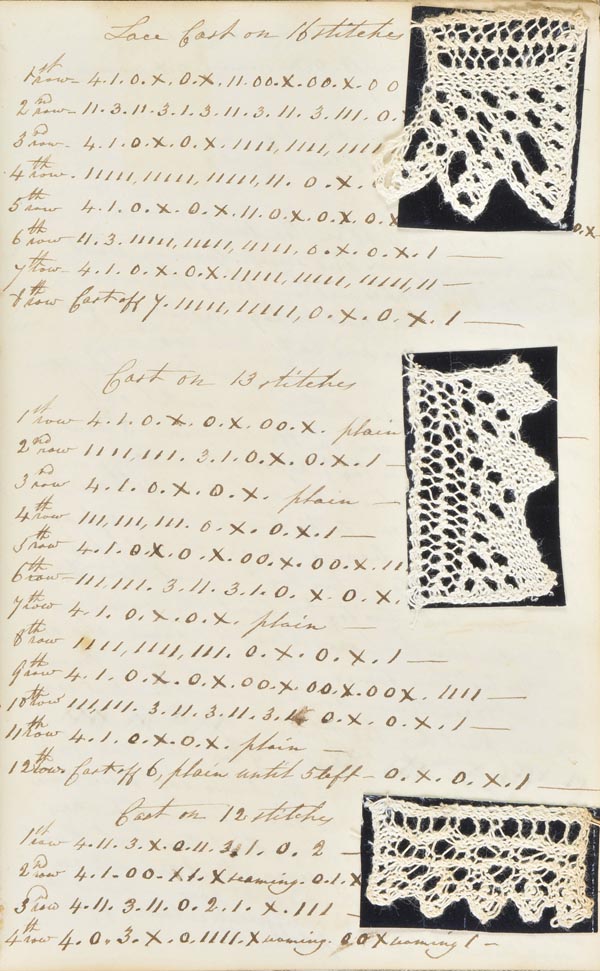 Lace Cast on 16 stitches
1st row - 4.1.0.X.0.X.11.00.X.00.X.00
2nd row - 11.3.11.3.1.3.11.3.11.3.111.0.
3rd row - 4.1.0.X.0.X.1111,1111,1111
4th row - 11111,11111,11111,11.0.X.
5th row 4.1.0.X.0.X.11.0.X.0.X.0.X 0.X-
6th row 11.3.11111,11111,11111,0.X.0.X.1 —
7th row - 4.1.0.X.0.X.11111,11111,11111,11 —
8th row Cast off 7.11111,11111,0.X.0.X.1 —
Cast on 13 stitches
1st row 4.1.0.X.0.X.00.X. plain —
2nd row 1111,111.3.1.0.X.0.X.1 —
3rd row 4.1.0.X.0.X. plain —
4th row 111,111,111.0.X.0.X.1 —
5th row 4.1.0X.0.X.00.X.00.X.11
6th row - 111,111.3.11.3.1.0.X.0.X.
7th row 4.1.0.X.0.X. plain —
8th row 1111,1111,111.0.X.0.X.1 —
9th row 4.1.0.X.0.X.00.X.00.X.00X.1111 —
10th row 111,111.3.11.3.11.3. 0.X.0.X.1 —
11th row 4.1.0.X.0.X. plain —
12th row. Cast off 6, plain until 5 left - 0.X.0.X.1 —
Cast on 12 stitches
1st row 4.11.3.X.0.11.3.1.0.2 —
2nd row 4.1.00.X1.X seaming. 0.1.X
3rd row 4.11.3.11.0.2.1.X.111 —
4th row 4.0.3.X.0.1111.X seaming. 00X seaming 1 —